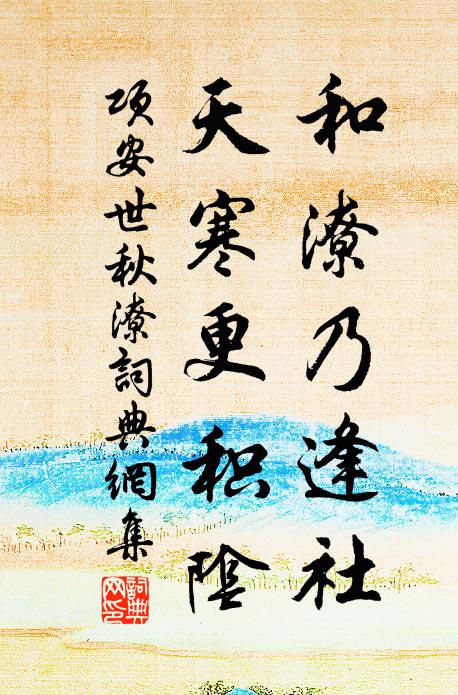 和潦乃逢社
天寒更积陰
项安世秋潦詞典網集
詞典